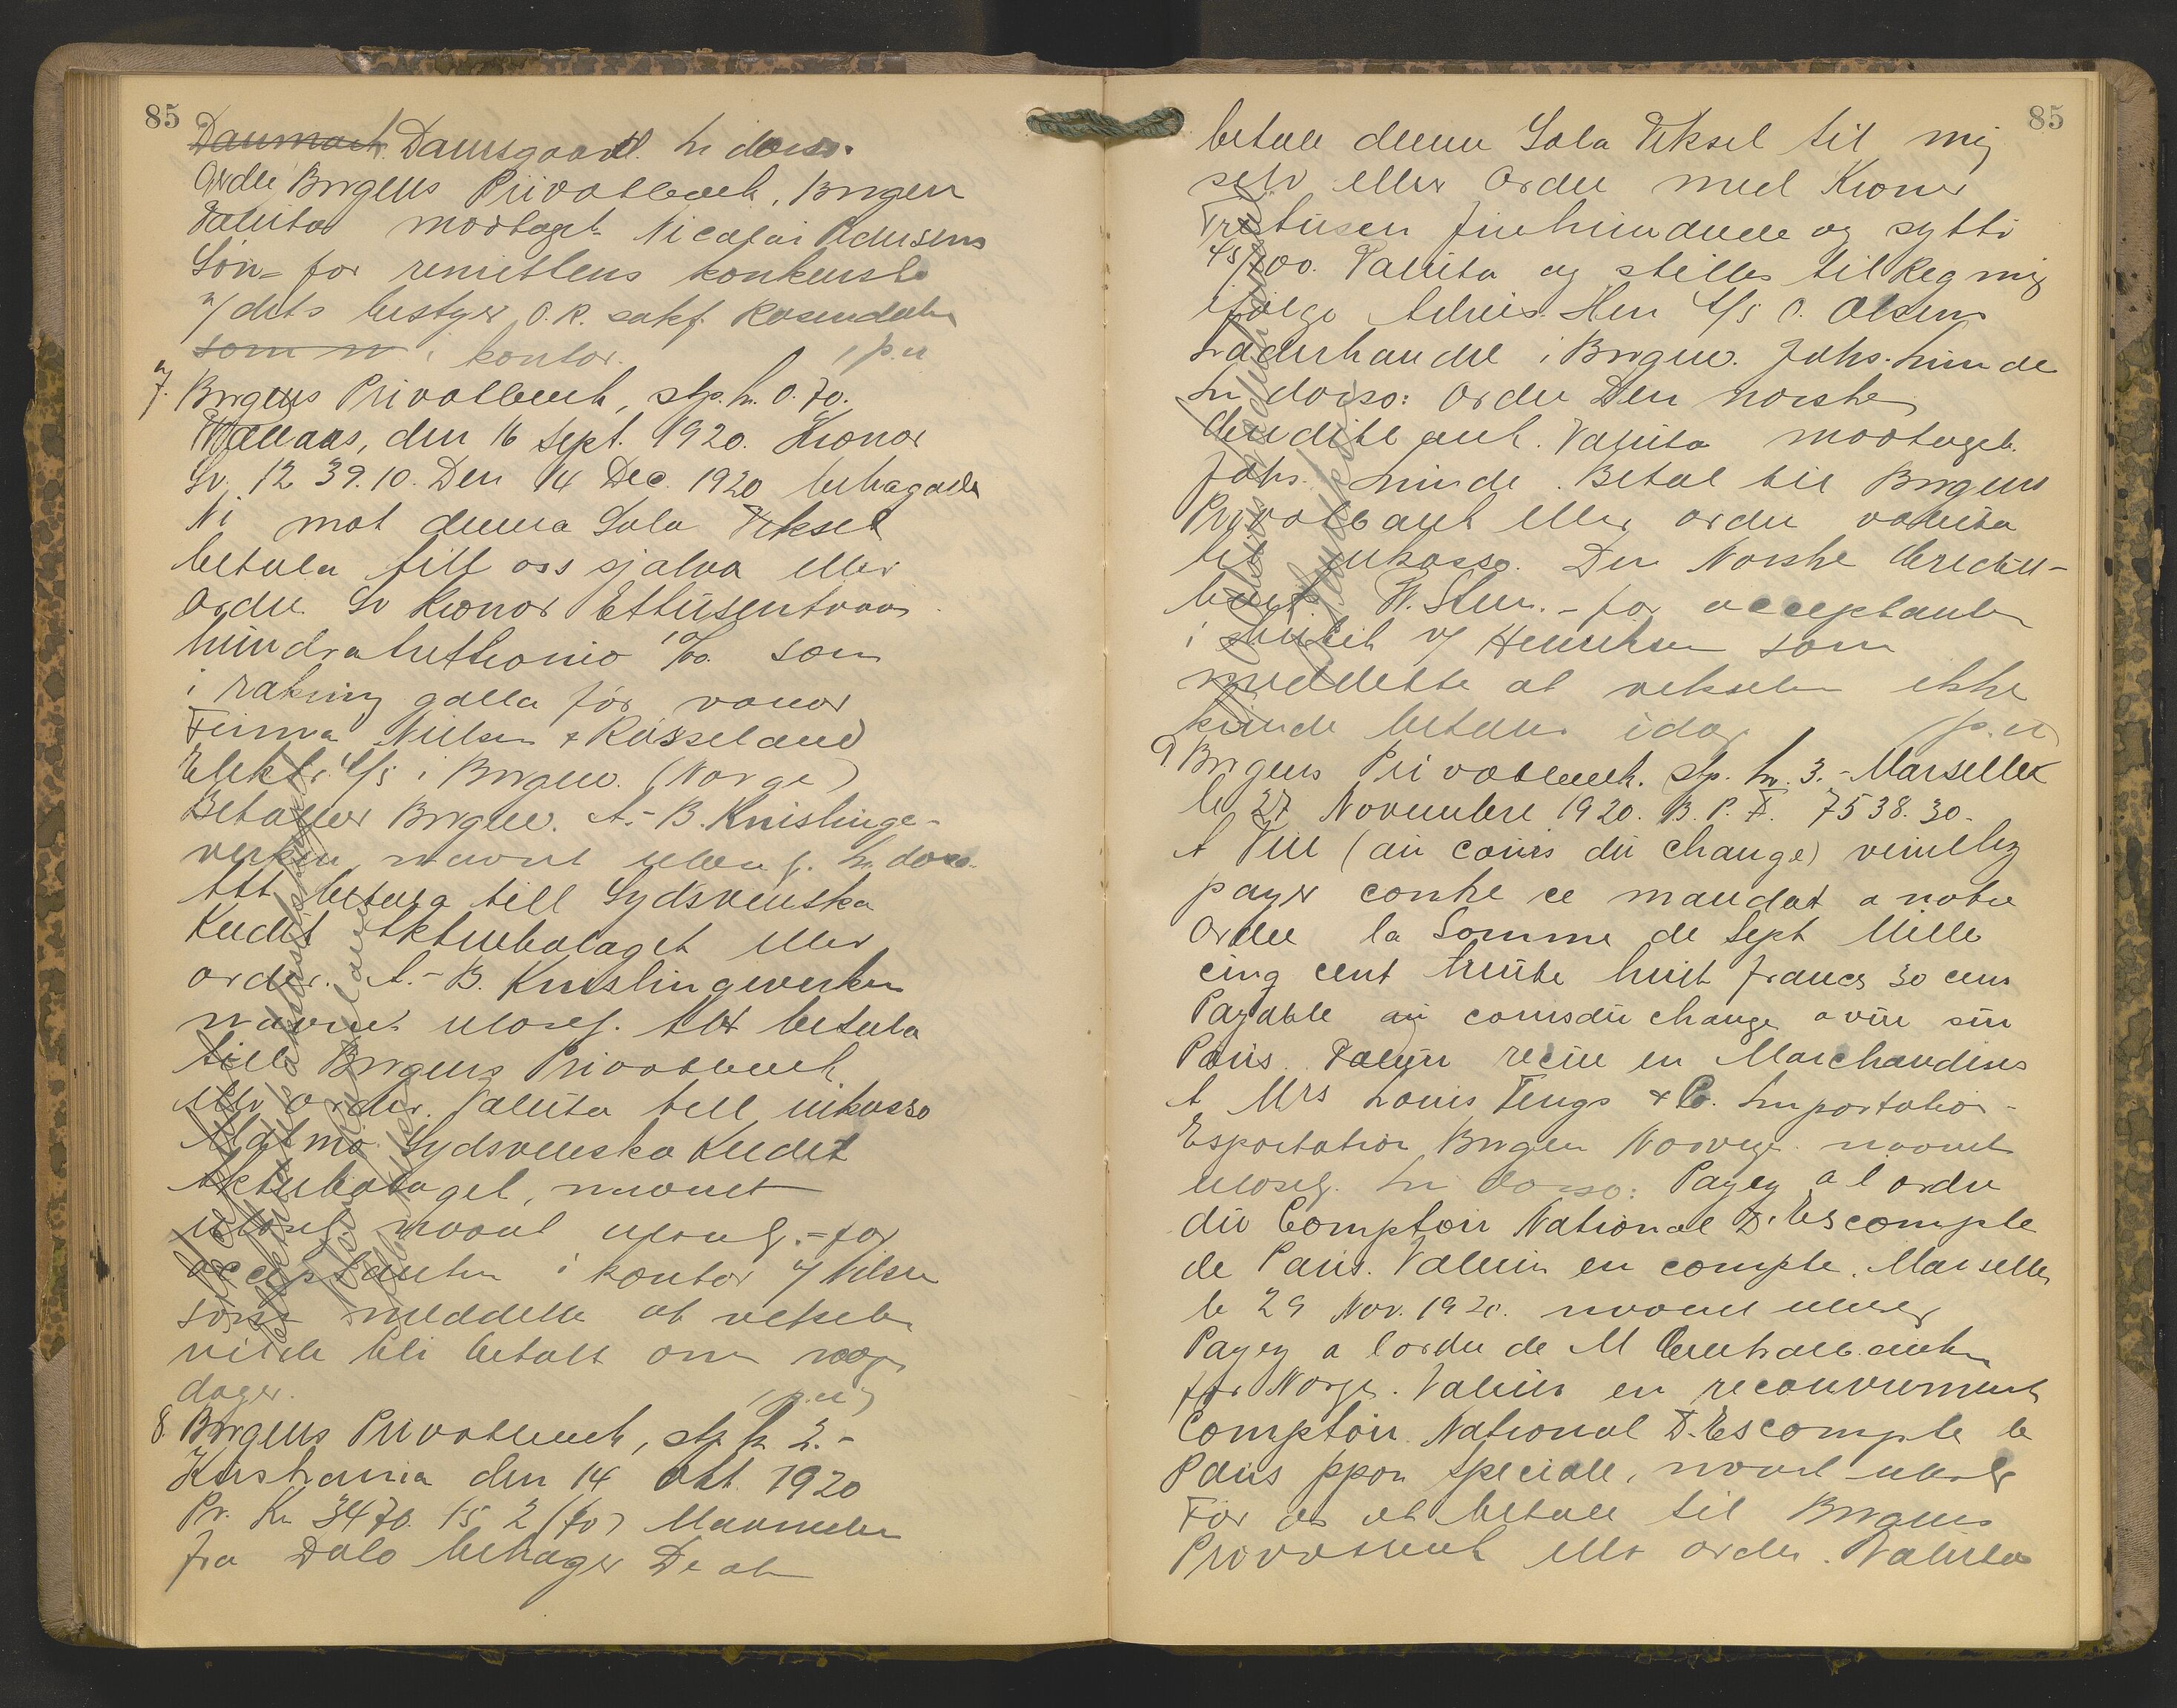 85
Danmark. Damsgaard. In dorso.
Ordre Bergens Privatbank, Bergen
Valuta mottaget Nicolai Pedersens
Søn - for remittens konkursbo
v/ dets bestyrer O.R. sakf. Rosendahl
som n i kontor. (p.u
7. Bergens Privatbank, stp. kr. 0.70.
den 16 Sept. 1920. Kronor
Sv. 1239.10. Den 14 Dec. 1920 behagade
Ni mot denna Sola Veksel
betala till oss sjalva eller
order Sv Kronor Ettusentvaa
hundratrettionio 10/100 som
i rakning galla för varor
Firma Nielsen & Rosseland
Elektr. A/S i Bergen. (Norge)
Betalbar Bergen. A.-B. Knislinge-
verken, navnet ulæsel. In dorso.
Att betala till Sydsvenska
Kredit Aktiebolaget eller
order. A.-B. Knislingeverken
navnet ulæsel. Att betala
till Bergens Privatbank
eller order. Valuta till inkasso
Malmö Sydsvenska Kredit
Aktiebolaget, navnet
ulæsel navnet ulæsel. - for
acceptanten i kontor v/ Nilsen
som meddelte at vekselen
vilde bli betalt om nogen
dager. (p.u)
8. Bergens Privatbank, stp. kr 2.-
Kristiania den 14 Okt. 1920
Pr. Kr 3470.45 2 (to) Maaneder
fra Dato behager De at
85
betale denne Sola Veksel til mig
selv eller Ordre med Kroner
Tretusen firehundrede og sytti
45/100. Valuta og stilles til Regning
ifølge Advis. Herr A/S O. Olsens
Læderhandel i Bergen. Johs. Linde
In dorso: Ordre Den norske
Creditbank. Valuta mottaget.
Johs. Linde. Betal til Bergens
Privatbank eller ordre valuta
til inkasso. Den Norske Credit-
bank. - for acceptanten
i v/ Henriksen som
meddelte at vekselen ikke
kunde betales idag (p.u)
9. Bergens Privatbank. stp. kr. 3.- Marseille
le 27 Novembre 1920. B.P.F. 7538.30.
A Vue (au cours du change) veuillez
payer contre ce mandat a notre
Ordre la Somme de Sept Mille
cinq cent trente huit francs 30 cens
Payable au cours du change a vue sur
Paris. Valeur recue en Marchandises
A Mrs Louis Tengs & Co. Importation-
Exportation Bergen Norvege. navnet
ulæsel. In Dorso: Payez a l ordre
du Comptoir National D. Escompte
de Paris. Valeur en compte. Marseille
le 29 Nov. 1920. navnet ulæsel
Payez a l ordre de M Centralbanken
for Norge. Valeur en recouvrement
Comptoir National D. Escompte de
Paris ppon Speciale, navnet ulæsel
For os at betale til Bergens
Privatbank eller ordre. Valuta